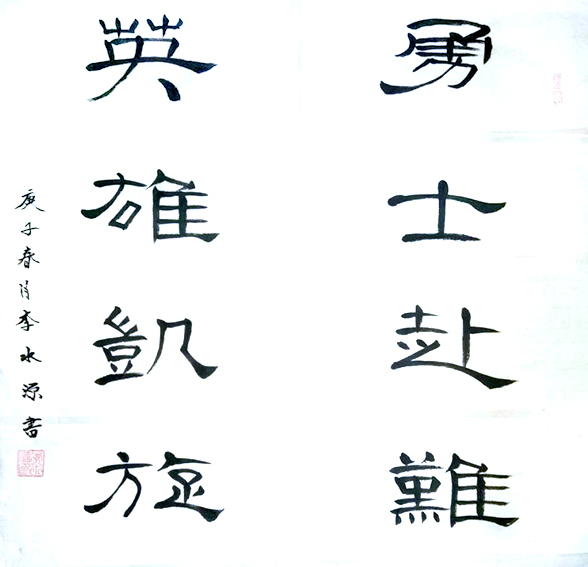 勇士赴難
英雄凱旋
庚子春月李水源書